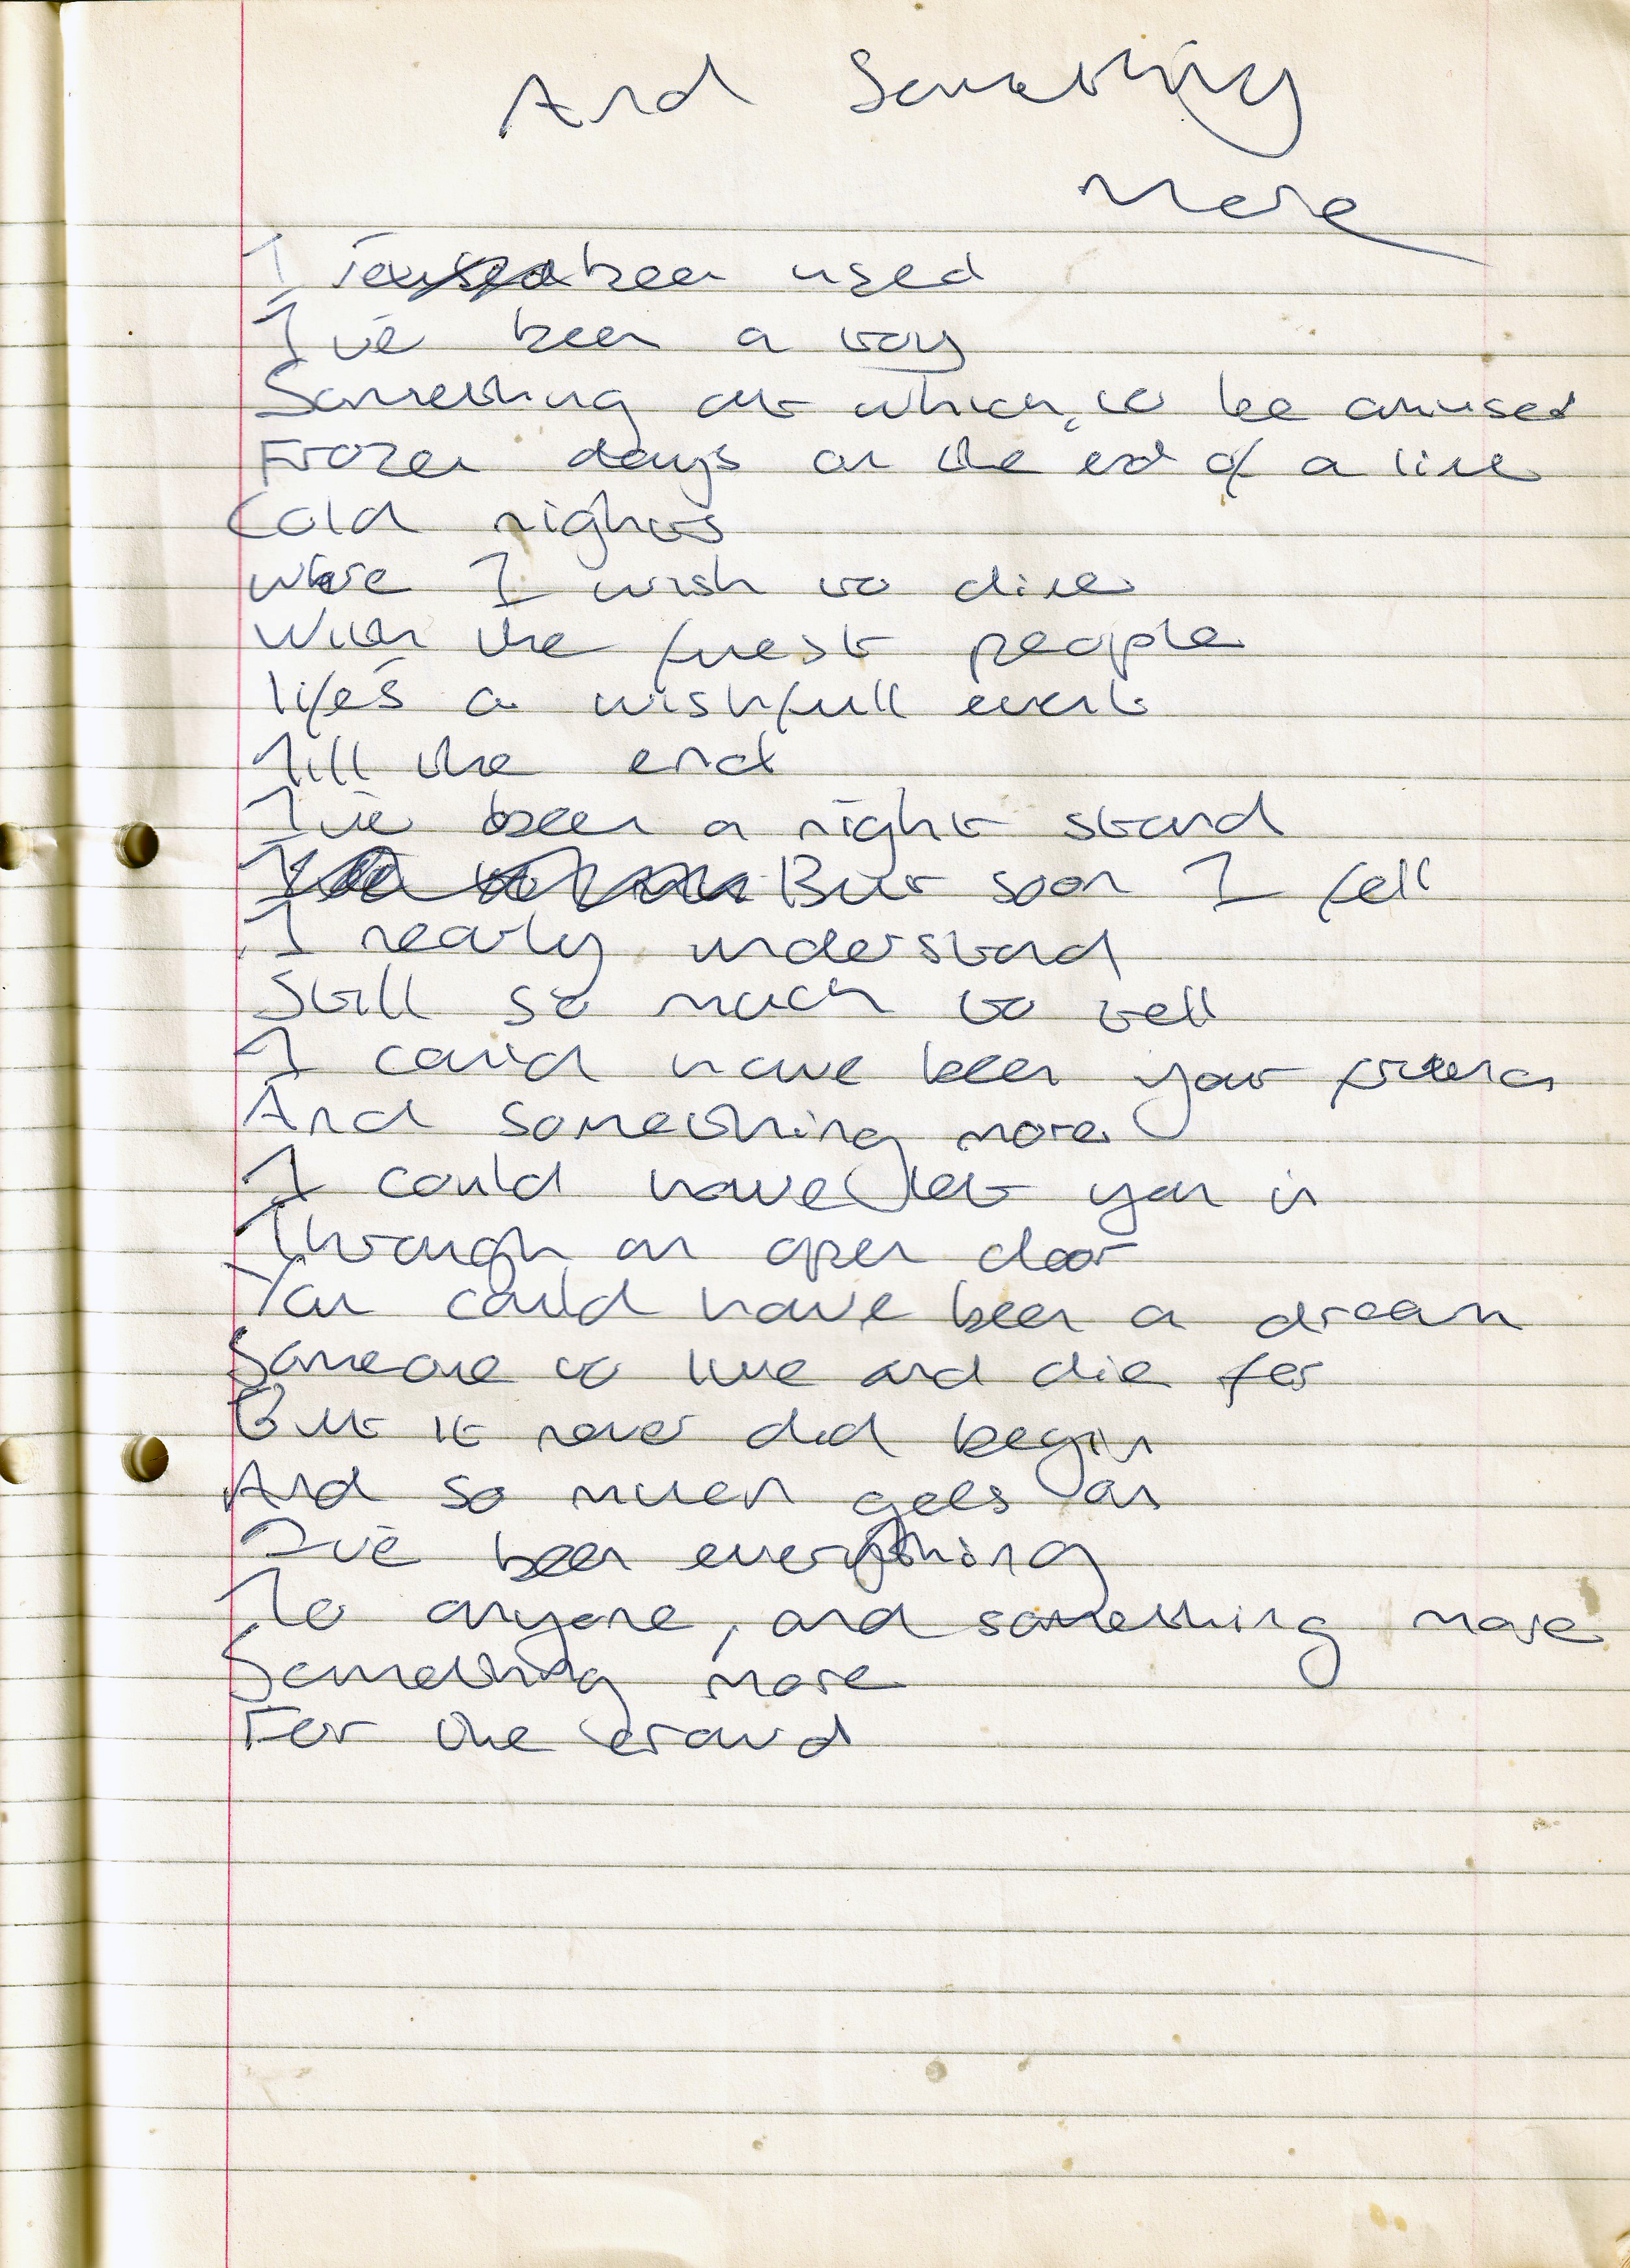 And Something
More
I been used
I've been a toy
Something at which to be amused
Frozen days on the end of a line
Cold nights
where I wish to dine
With the finest people
life's a wishfull event
Till the end
I've been a night stand
But soon I fell
I nearly understand
Still so much to tell
I could have been your friend
And something more
I could have let you in
Through an open door
You could have been a dream
Someone to live and die for
But it never did begin
And so much gets on
I've been everything
To anyone, and something more
Something more
For the crowd